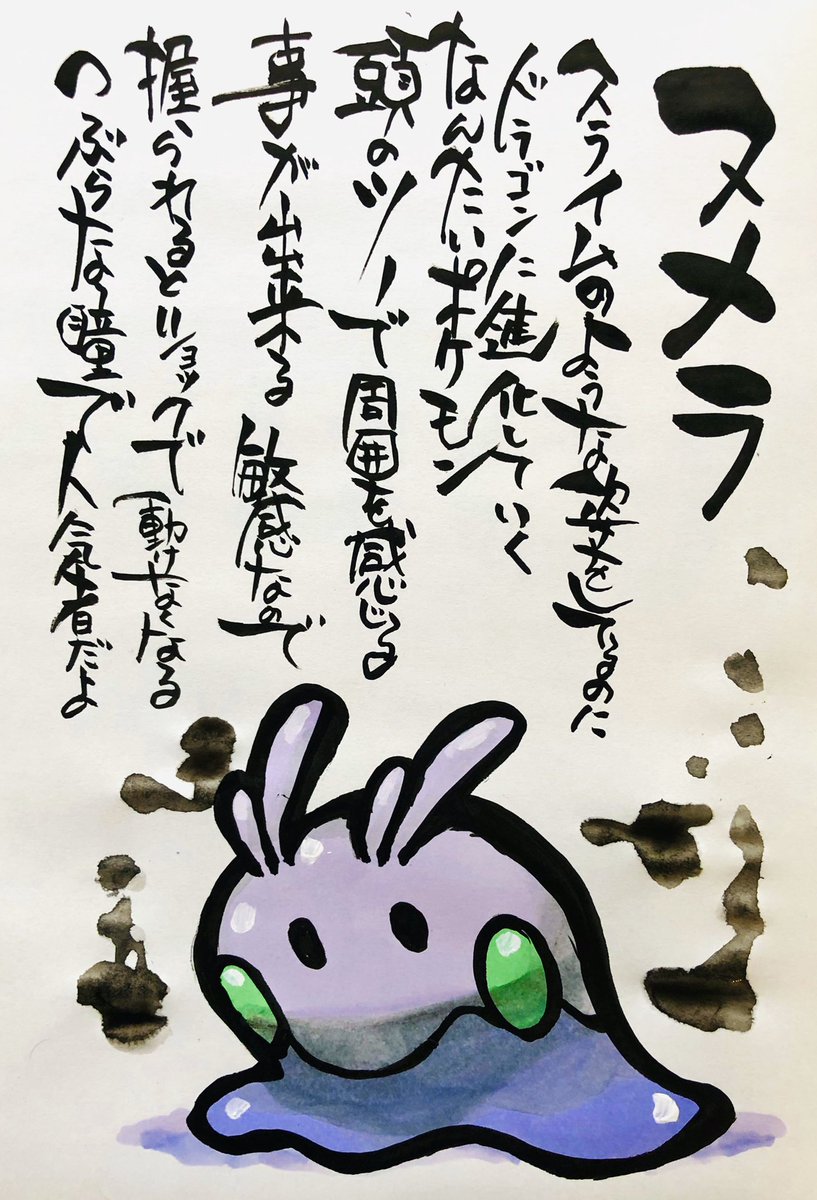 ヌメラ
スライムのような姿をしてるのに
ドラゴンに進化していく
なんたいポケモン
頭のツノで周囲を感じる
事が出来る 敏感なので
握られるとショックで動けなくなる
つぶらな瞳で人気者だよ